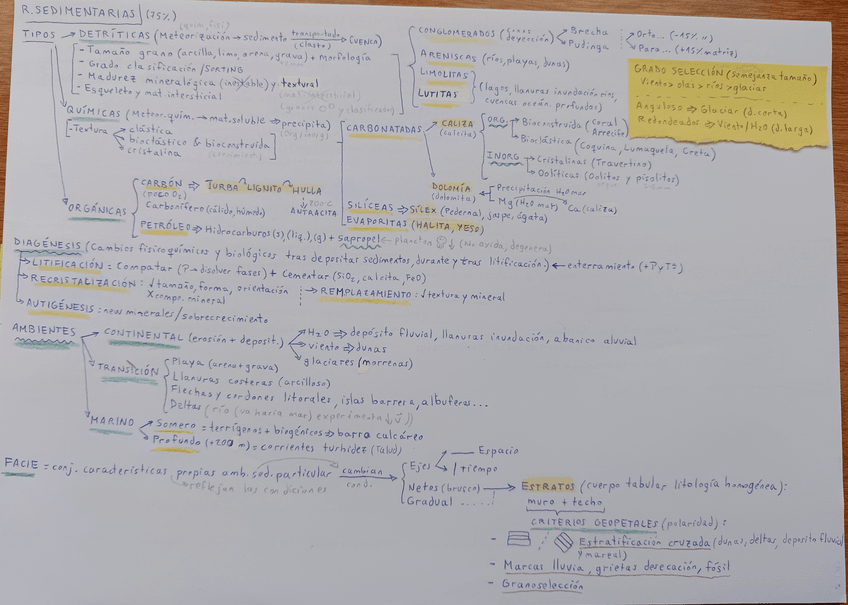 R. SEDIMENTARIAS (75%)
TIPOS → DETRÍTICAS (Meteorización → sedimento transportado (clasto) → CUENCA)
- Tamaño grano (arcilla, limo, arena, grava) + Morfología
- Grado clasificación / SORTING
- Madurez mineralógica (inestable) y textural
- Esqueleto y mat. intersticial
CONGLOMERADOS (conos deyección) → Brecha
Pudinga
Orto... (-15% u)
Para... (+15% matriz)
ARENISCAS (ríos, playas, dunas)
LIMOLITAS
LUTITAS
(lagos, llanuras inundación ríos,
cuencas oceán. profundos)
GRADO SELECCIÓN (semejanza tamaño)
Viento > olas > ríos > glaciar
Anguloso ⇒ Glaciar (d. corta)
Redondeados ⇒ Viento/H2O (d. larga)
QUÍMICAS (Meteor. quim. → mat. soluble ⇒ precipita)
- Textura → clástica
bioclástica & bioconstruida
cristalina
CARBONATADAS → CALIZA
(calcita)
ORG → Bioconstruida (Coral Arrecife)
Bioclástica (Coquina, Lumaquela, Creta)
INORG → Cristalinas (Travertino)
Oolíticas (Oolitos y pisolitos)
DOLOMÍA
(dolomita)
Precipitación H2O mar
Mg (H2O mar) Ca (caliza)
SILÍCEAS ⇒ SÍLEX (Pedernal, jaspe, ágata)
EVAPORITAS (HALITA, YESO)
ORGÁNICAS
CARBÓN ⇒ TURBA LIGNITO HULLA
(poco O2)
ANTRACITA
Carbonífero (cálido, húmedo)
PETRÓLEO ⇒ Hidrocarburos (s), (liq.), (g) + Sapropel ← plancton (No oxida, degenera)
DIAGÉNESIS (Cambios fisicoquímicos y biológicos tras depositas sedimentos, durante y tras litificación.) ← enterramiento (+P y TS)
→ LITIFICACIÓN = Compatar (P → disolver fases) + Cementar (SiO2, calcita, FeO)
→ RECRISTALIZACIÓN: ↓ tamaño, forma, orientación → REMPLAZAMIENTO: ↓ textura y mineral
X comp. mineral
→ AUTIGÉNESIS: new minerales / sobrecrecimiento
AMBIENTES → CONTINENTAL (erosión + deposit.) → H2O ⇒ depósito fluvial, llanuras inundación, abanico aluvial
viento ⇒ dunas
glaciares (morrenas)
TRANSICIÓN
Playa (arena + grava)
Llanuras costeras (arcilloso)
Flechas y cordones litorales, islas barrera, albuferas...
Deltas (río (va hacia mar) experimenta ↓ v)
MARINO → Somero = terrígenos + biogénicos ⇒ barro calcáreo
Profundo (+200 m) = corrientes turbidez (Talud)
FACIE = conj. características, propias amb. sed. particular cambian cond. →
reflejan las condiciones
Ejes → Espacio
tiempo
Netos (brusco)
Gradual .....
ESTRATOS (cuerpo tabular litología homogénea):
muro + techo
CRITERIOS GEOPETALES (polaridad):
- Estratificación cruzada (dunas, deltas, deposito fluvial
y mareal)
- Marcas lluvia, grietas desecación, fósil
- Granoselección